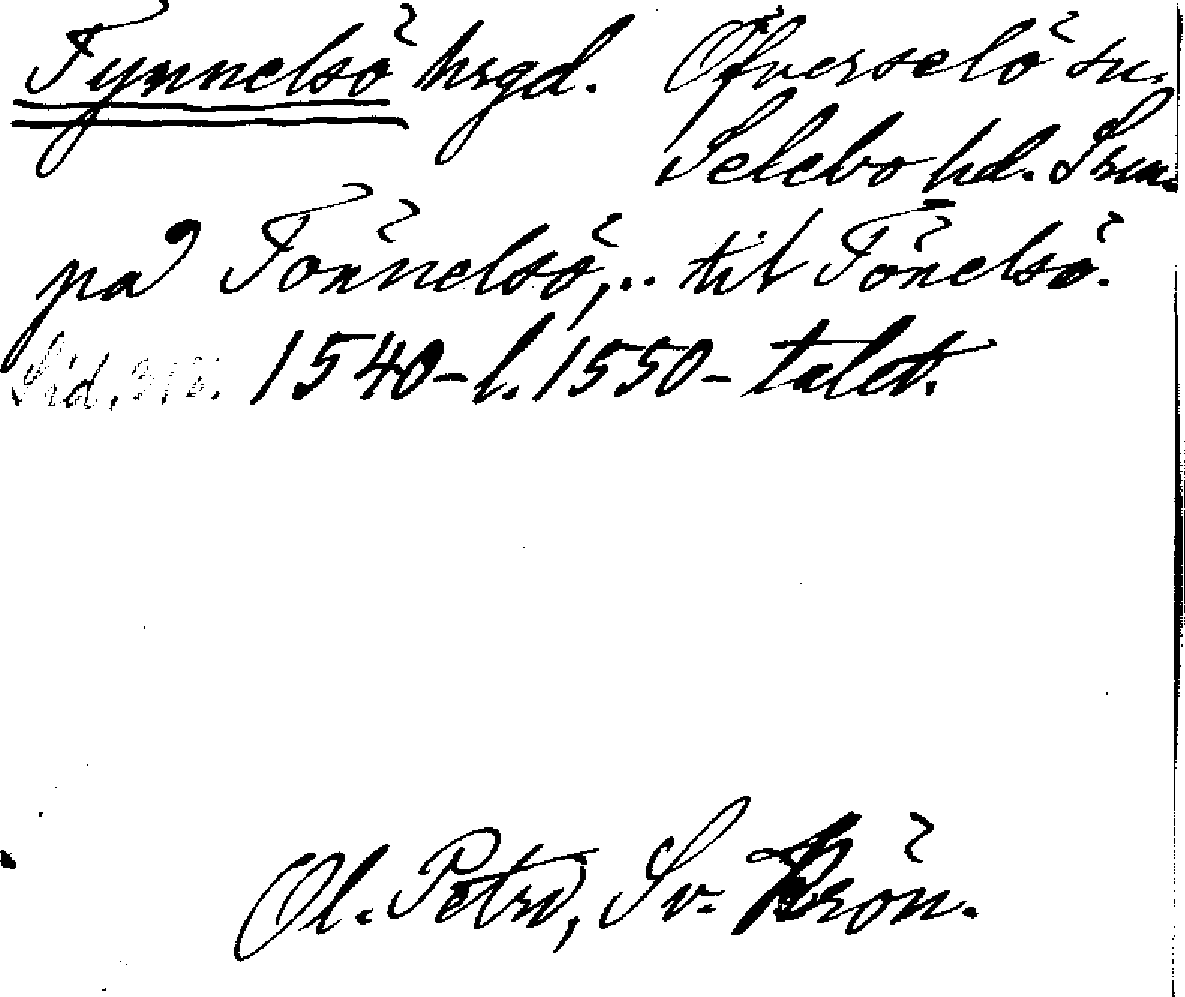 Tynnelsö hrgd. Öfverselö sn.
Selebo hd. Srm.
på Tönnelsö,.. till Tönelsö.
Sid. 315. 1540-l. 1550-talet.
Ol. Petro, Sv. Krön.